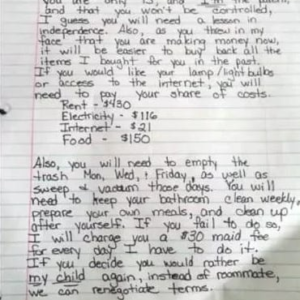 and that you won't be controlled,
I guess you will need a lesson in
independence. Also, as you threw in my
face that you are making money now,
it will be easier to buy back all the
items I bought for you in the past.
If you would like your lamp/lightbulbs
or access to the internet, you will
need to pay your share of costs.
Rent - $430
Electricity - $116
Internet - $21
Food - $150
Also, you will need to empty the
trash Mon, Wed, + Friday, as well as
sweep + vacuum those days. You will
need to keep your bathroom clean weekly,
prepare your own meals, and clean up
after yourself. If you fail to do so,
I will charge you a $30 maid fee
for every day I have to do it.
If you decide you would rather be
my child again, instead of roommate,
we can renegotiate terms.